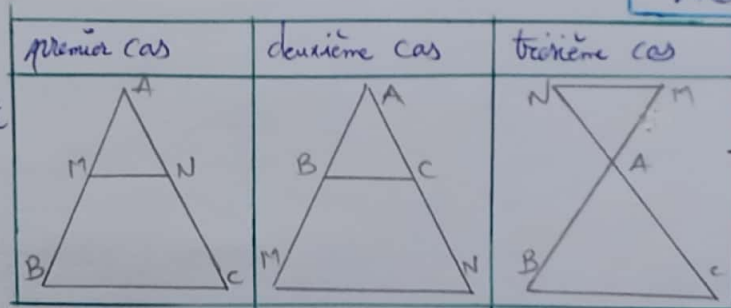 premier cas
deuxième cas
troisième cas
A
M N
B C
A
B C
M N
N M
A
B C